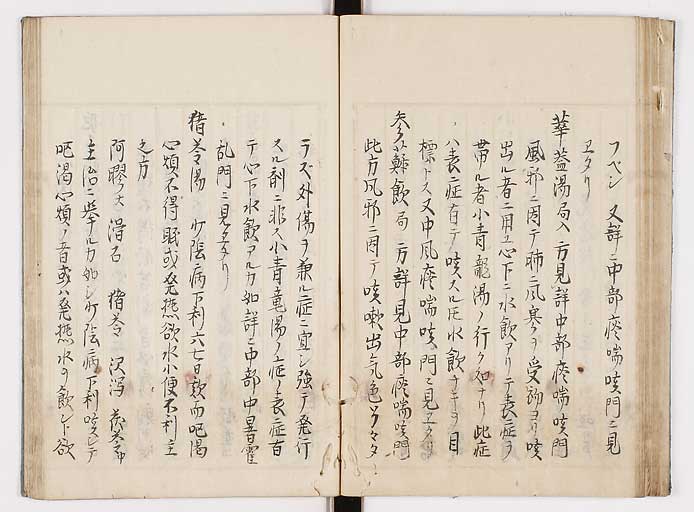 フベシ 又詳ニ中部痰喘咳門ニ見
ヱタリ
華蓋湯局入 方見詳中部痰喘咳門
風邪ニ因テ肺ニ風寒ヲ受 咳
出ル者ニ用ユ心下ニ水飲アリテ表症ヲ
帯ル者小青龍湯ノ行ク如ナリ此症
ハ表症有テ咳スル 水飲ナキヲ目
標トス又中風痰喘咳門ニ見ヱタリ
参蘇飲局 方詳見中部痰喘咳門
此方風邪ニ因テ咳嗽出気色
ラズ外傷ヲ兼ル症ニ宜シ強テ発行
スル剤ニ非ス小青竜湯ノ症ハ表症有
テ心下水飲アルカ如詳ニ中部中暑霍
乱門ニ見ヱタリ
猪苓湯 少陰病下利六七日欬而呕渇
心煩不得眠或発熱欲水小便不利主
之方
阿膠 滑石 猪苓 沢瀉 茯苓
主治ニ挙ルカ如シ少陰病下利咳シテ
呕渇心煩ノ者或ハ発熱水ヲ飲ント欲